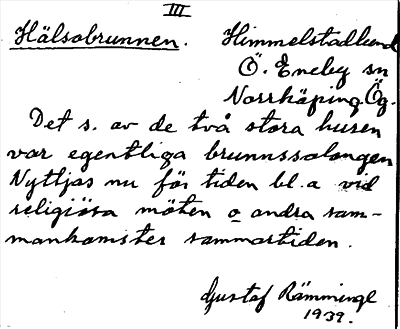 III
Hälsobrunnen. Himmelstadlund
Ö. Eneby sn
Norrköping Ög.
Det s. av de två stora husen
var egentliga brunnssalongen
Nyttjas nu för tiden bl.a vid
religiösa möten o andra sam-
mankomster sommartiden.
Gustaf
1939.